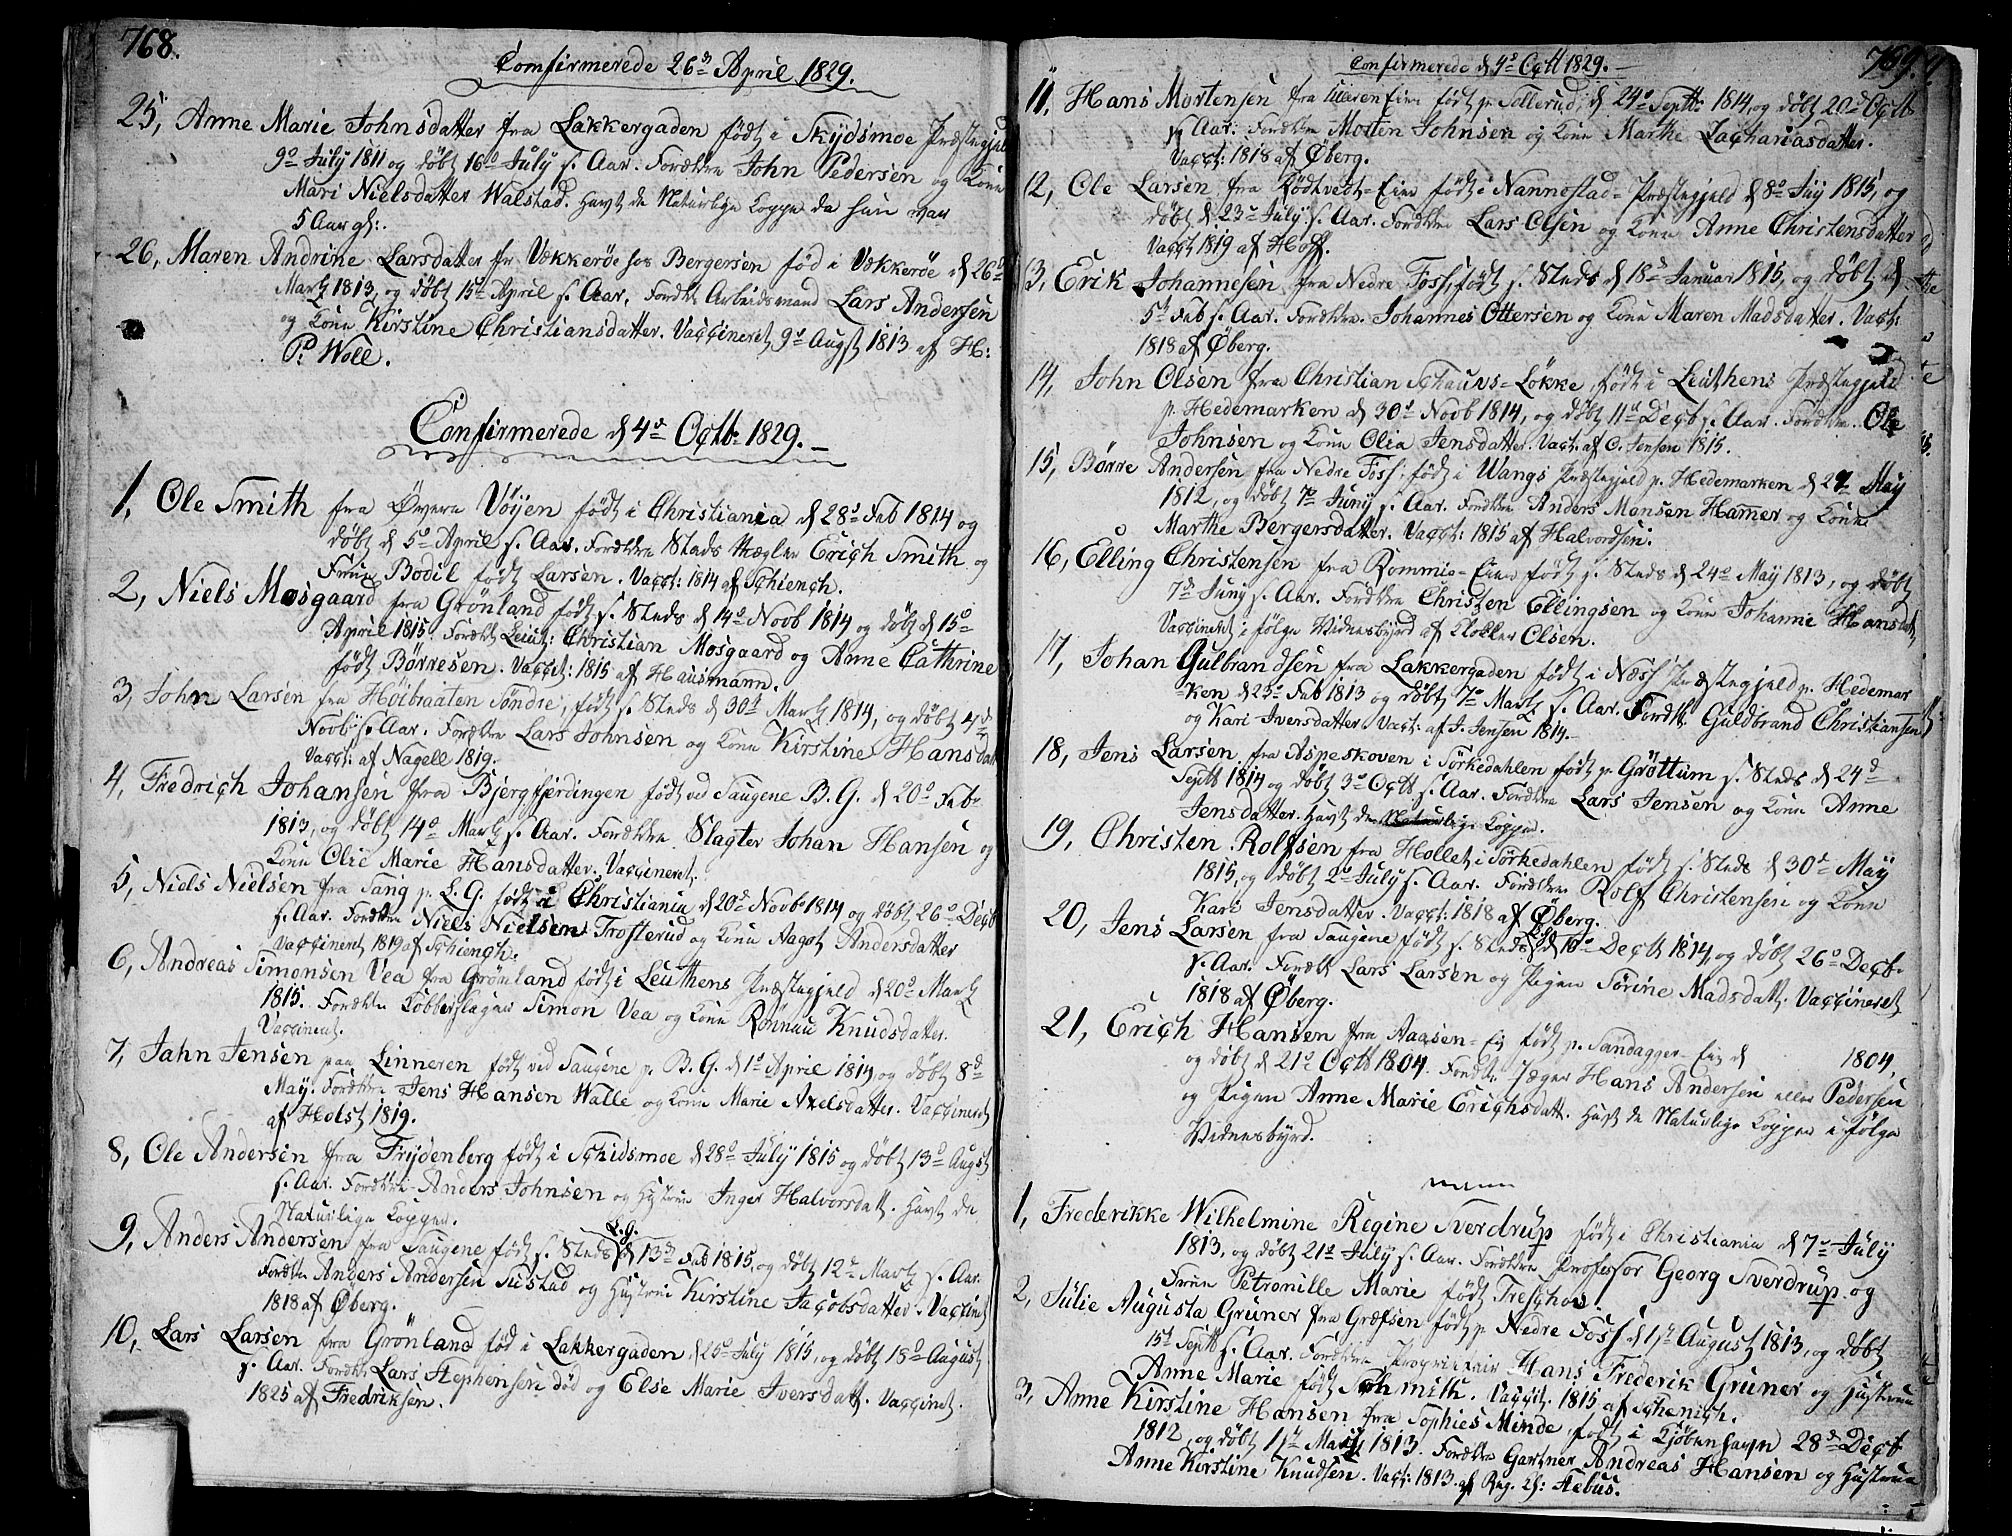 768.
Confirmerede 26de April 1829.
25, Anne Marie Johnsdatter fra Lakkergaden født i Skydsmoe Præstegjeld
9d July 1811 og døbt 16d July s. Aar. Forældre John Pedersen og Kone
Mari Nielsdatter Walstad. Havt de Naturlige Kopper da hun var
5 Aar gl:.
26, Maren Andrine Larsdatter fr Vækkerøe hos Bergersen fød i Vækkerøe d 26d
Martz 1813, og døbt 15d April s. Aar, Forældre Arbeidsmand Lars Andersen
og Kone Kirstine Christiansdatter. Vaccineret 9d Augst 1813 af H:
P: Woll.
Confirmerede d 4d Octb: 1829.
1, Ole Smith fra Øvern Vöyen født i Christiania d 28d Feb 1814 og
døbt d 5d April s. Aar. Forældre Stads Mægler Erich Smith og
Frue Bodil født Larsen. Vacct: 1814 af Schiench.
2, Niels Mosgaard fra Grönland født s. Steds d 14d Novb 1814 og døbt d 15d
April 1815. Forældr Leut: Christian Mosgaard og Anne Cathrine
født Børresen. Vacct: 1815 af Hausmann.
3, John Larsen fra Höibraaten Söndre, født s. Steds d 30d Martz 1814, og døbt 4d
Novb s. Aar. Forældre Lars Johnsen og Kone Kirstine Hansdatt
Vacct: af Nagell 1819.
4, Fredrich Johansen fra Bjergfjerdingen født ved Saugene B. G. d 20d Feb
1813, og døbt 14d Martz s. Aar. Forældre Slagter Johan Hansen og
Kone Olie Marie Hansdatter. Vaccineret.
5, Niels Nielsen fra Tang p. L. G. født i Christiania d 20d Novb 1814 og døbt 26d Decb
s. Aar. Forældre Niels Nielsen Trosterud og Kone Aagot Andersdatter
Vaccineret 1819 af Schiench.
6, Andreas Simonsen Vea fra Grönland født i Leuthens Præstegjeld d 20d Martz
1815. Forældre Kobberslager Simon Vea og Kone Rönnau Knudsdatter.
Vaccineret.
7, Jahn Jensen paa Linneren født ved Saugene p. B. G. d 1d April 1814 og døbt 8d
May. Forældre Jens Hansen Walle og Kone Marie Axelsdatter. Vaccineret
af Holst 1819.
8, Ole Andersen fra Frydenberg født i Schidsmoe d 28d July 1815 og døbt 13d Augst
s. Aar. Forældre Anders Johnsen og Hustrue Inger Halvorsdatt. Havt de
Naturlige Kopper.
9, Anders Andersen fra Saugene født s. Steds L.G. d 13d Feb 1815, og døbt 12d Martz s. Aar.
Forældre Anders Andersen Sustad og Hustrue Kirstine Jacobsdatter. Vaccinet
1818 af Øberg.
10, Lars Larsen fra Grönland fød i Lakkergaden, d 25d July 1815, og døbt 18d August
s. Aar. Forældr Lars Stephensen død og Else Marie Iversdatt. Vaccinet.
1825 af Fredriksen.
769.
Confirmerede d 4d Octb 1829.
11, Hans Mortensen fra Ulleren Eie født p. Sollerud, d 24d Septb: 1814, og døbt 20d Octb
s. Aar: Forældre Morten Johnsen og Kone Marthe Zachariasdatter.
Vacct: 1818 af Øberg.
12, Ole Larsen fra Rödtvedt-Eie født i Nannestad-Præstegjeld d 8d July 1815, og
døbt d 23d July s. Aar. Forældre Lars Olsen og Kone Anne Christensdatter
Vacct 1819 af Hoff.
13, Erik Johannesen fra Nedre Foss, født s. Steds d 18d Januar 1815, og døbt d
5d Feb s. Aar. Forældre. Johannes Ottersen og Kone Maren Madsdatter. Vact:
1818 af Øberg.
14, John Olsen fra Christian Schauvs-Løkke, født i Leuthens Præstegjeld
p. Hedemarken d 30d Novb 1814, og døbt 11d Decb s. Aar. Forældre. Ole
Johnsen og Kone Olia Jensdatter. Vact: af C. Jensen 1815.
15, Børre Andersen fra Nedre Foss, født i Wangs Præstegjeld p. Hedemarken d 29d May
1812, og døbt 7d Juny s. Aar. Forældre Anders Monsen Hamer og Kone
Marthe Bergersdatter. Vacct: 1815 af Halvordsen.
16, Elling Christensen fra Rommis-Eie født s. Steds d 24d May 1813, og døbt
7d Juny s. Aar. Forældre Christen Ellingsen og Kone Johanne Hansdt,
Vaccineret i følge Vidnesbyrd af Klokker Olsen.
17, Johan Gulbrandsen fra Lakkergaden født i Næss Præstegjeld p. Hedemar
-ken d 23d Feb 1813 og døbt 7d Martz s. Aar. Forældr. Guldbrand Christiansen
og Kari Iversdatter. Vacct: af J. Jensen 1814.
18, Jens Larsen fra Aspeskoven i Sörkedahlen født p. Gröttum s. Steds d 24d
Septb 1814 og døbt 3d Octb s. Aar. Forældre Lars Jensen og Kone Anne
Jensdatter. Havt de Naturlige Kopper.
19, Christen Rolfsen fra Hollet i Sörkedahlen født s. Steds d 30d May
1815, og døbt 2d July s. Aar. Forældre Rolf Christensen og Kone
Kari Jensdatter. Vacct: 1818 af Øberg.
20, Jens Larsen fra Saugene født s. Steds L.G. d 10d Decb 1814, og døbt 26d Decb.
s. Aar. Forældr Lars Larsen og Pigen Sørine Madsdatt: Vaccineret
1818 af Øberg.
21, Erich Hansen fra Aaasen-Eie født p. Sandagger-Eie d 1804,
og døbt d 21d Octb 1804. Forældr. Jæger Hans Andersen eller Pedersen
og Pigen Anne Marie Erichsdatt. Havt de Naturlige Kopper i følge
Vidnesbyrd.
1, Frederikke Wilhelmine Regine Sverdrup født i Christiania d 7d July
1813, og døbt 21d July s. Aar. Forældre Professor Georg Sverdrup og
Frue Petronille Marie født Treschow.
2, Julie Augusta Gruner fra Græfsen født p. Nedre Foss d 17d August 1813, og døbt
15d Septb s. Aar. Forældre Proprietair Hans Frederik Gruner og Hustrue
Anne Marie født Schmith. Vaccit. 1815 af Schenich.
3, Anne Kirstine Hansen fra Sophies Minde, født i Kjöbenhavn 28d Decb
1812, og døbt 17d May 1813. Forældre Gartner Andreas Hansen og Hustrue
Anne Kirstine Knudsen. Vact: 1813 af Reg. Ch: Febus.